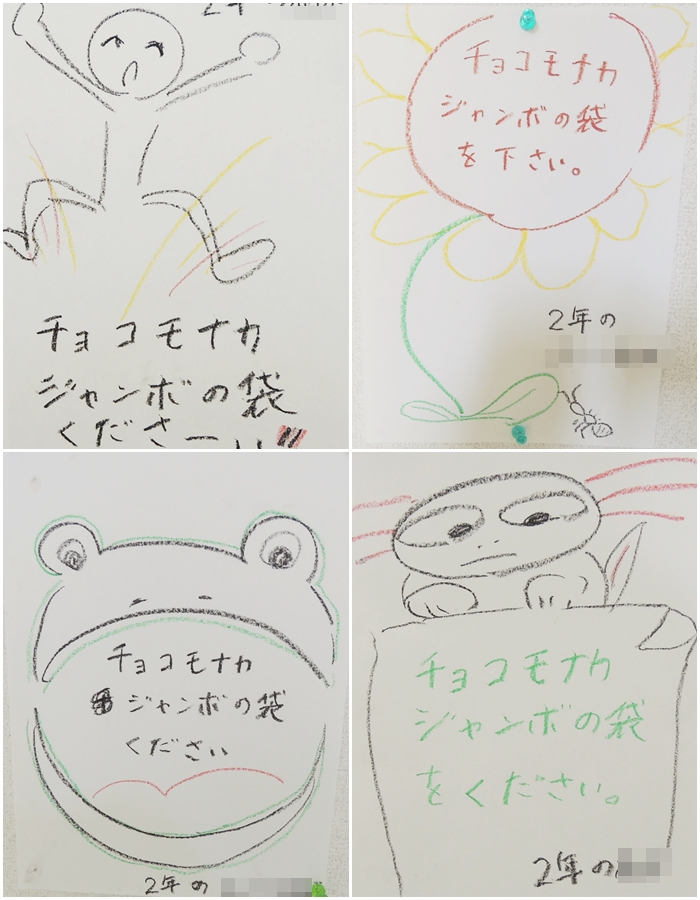 2年
チョコモナカ
ジャンボの袋
くださーい!!!
チョコモナカ
ジャンボの袋
を下さい。
2年の
チョコモナカ
ジャンボの袋
ください
2年の
チョコモナカ
ジャンボの袋
をください。
2年の